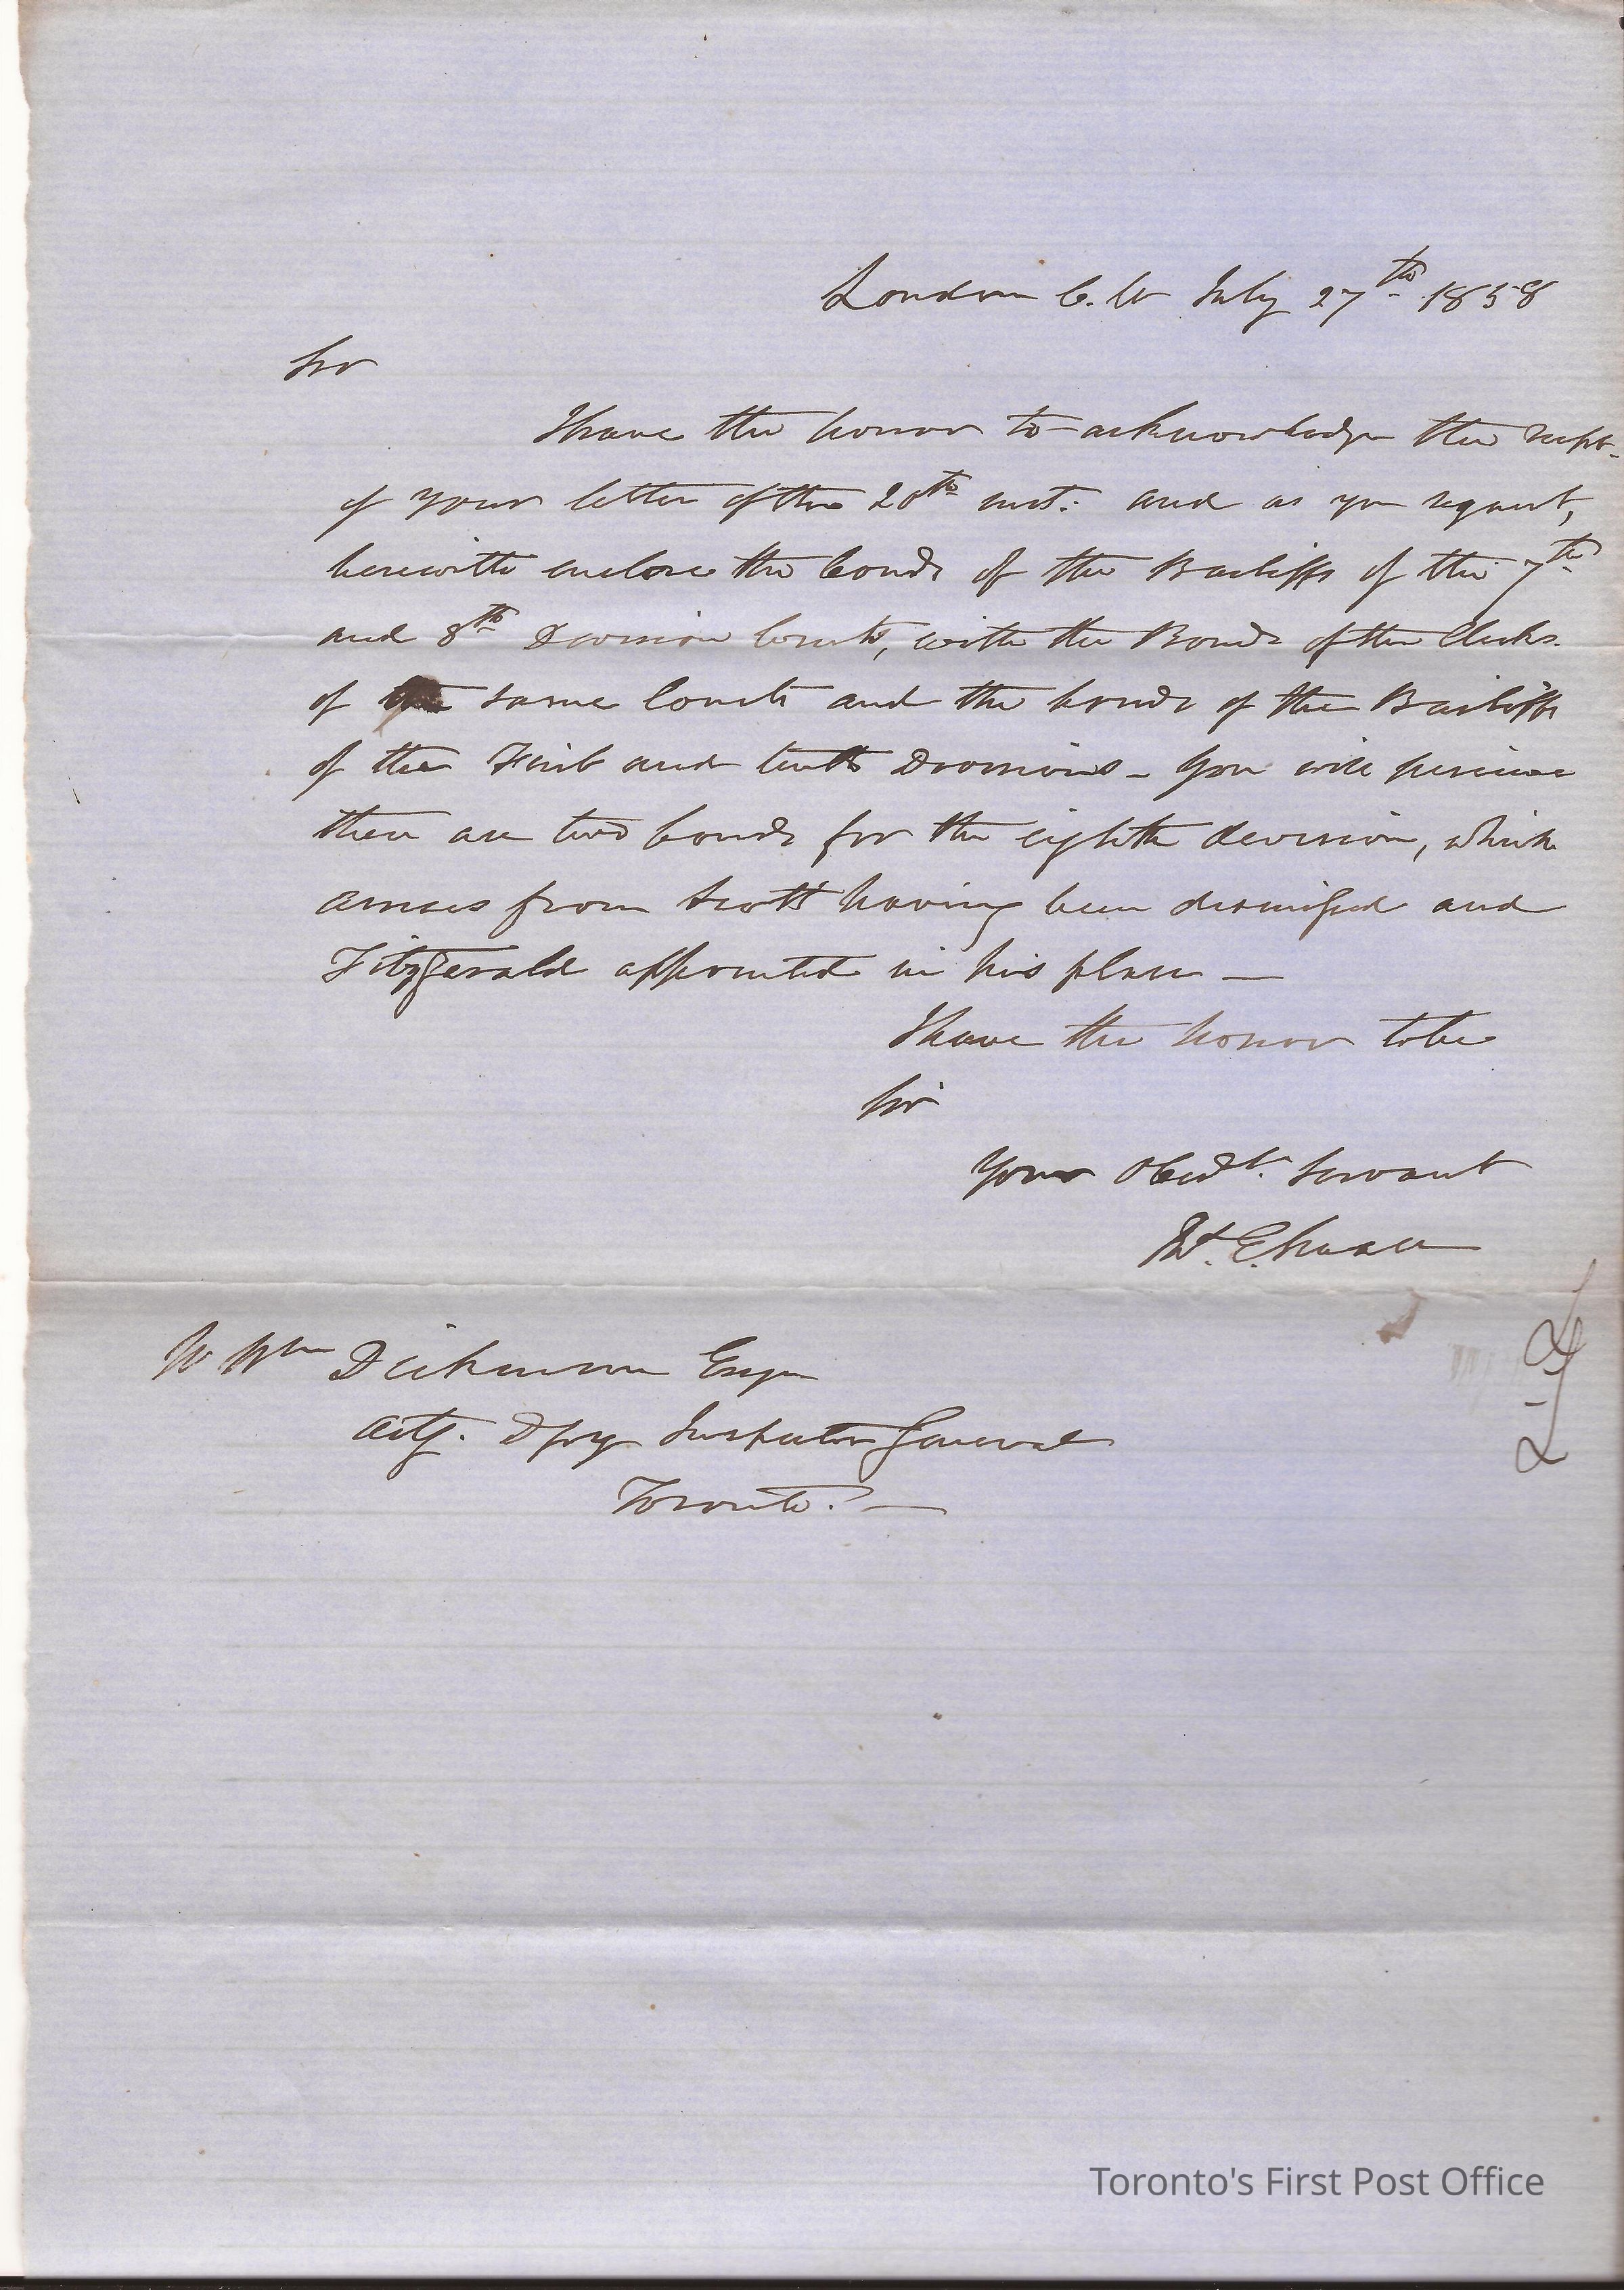 London C.W July 27th 1858
Sir
I have the honor to acknowledge the recpt.
of your letter of the 20th inst. and as you request,
herewith enclose the bonds of the Bailiffs of the 7th
and 8th Division Courts, with the Bonds of the Clerks
of the same Courts and the bonds of the Bailiffs
of the First and tenth Divisions - You will perceive
there are two bonds for the eighth division, which
arises from Scott having been dismissed and
Fitzgerald appointed in his place —
I have the honor to be
Sir
Your Obedt. Servant
Dickinson Esqr
Actg. Dpy Inspector General
Toronto. —
Toronto's First Post Office